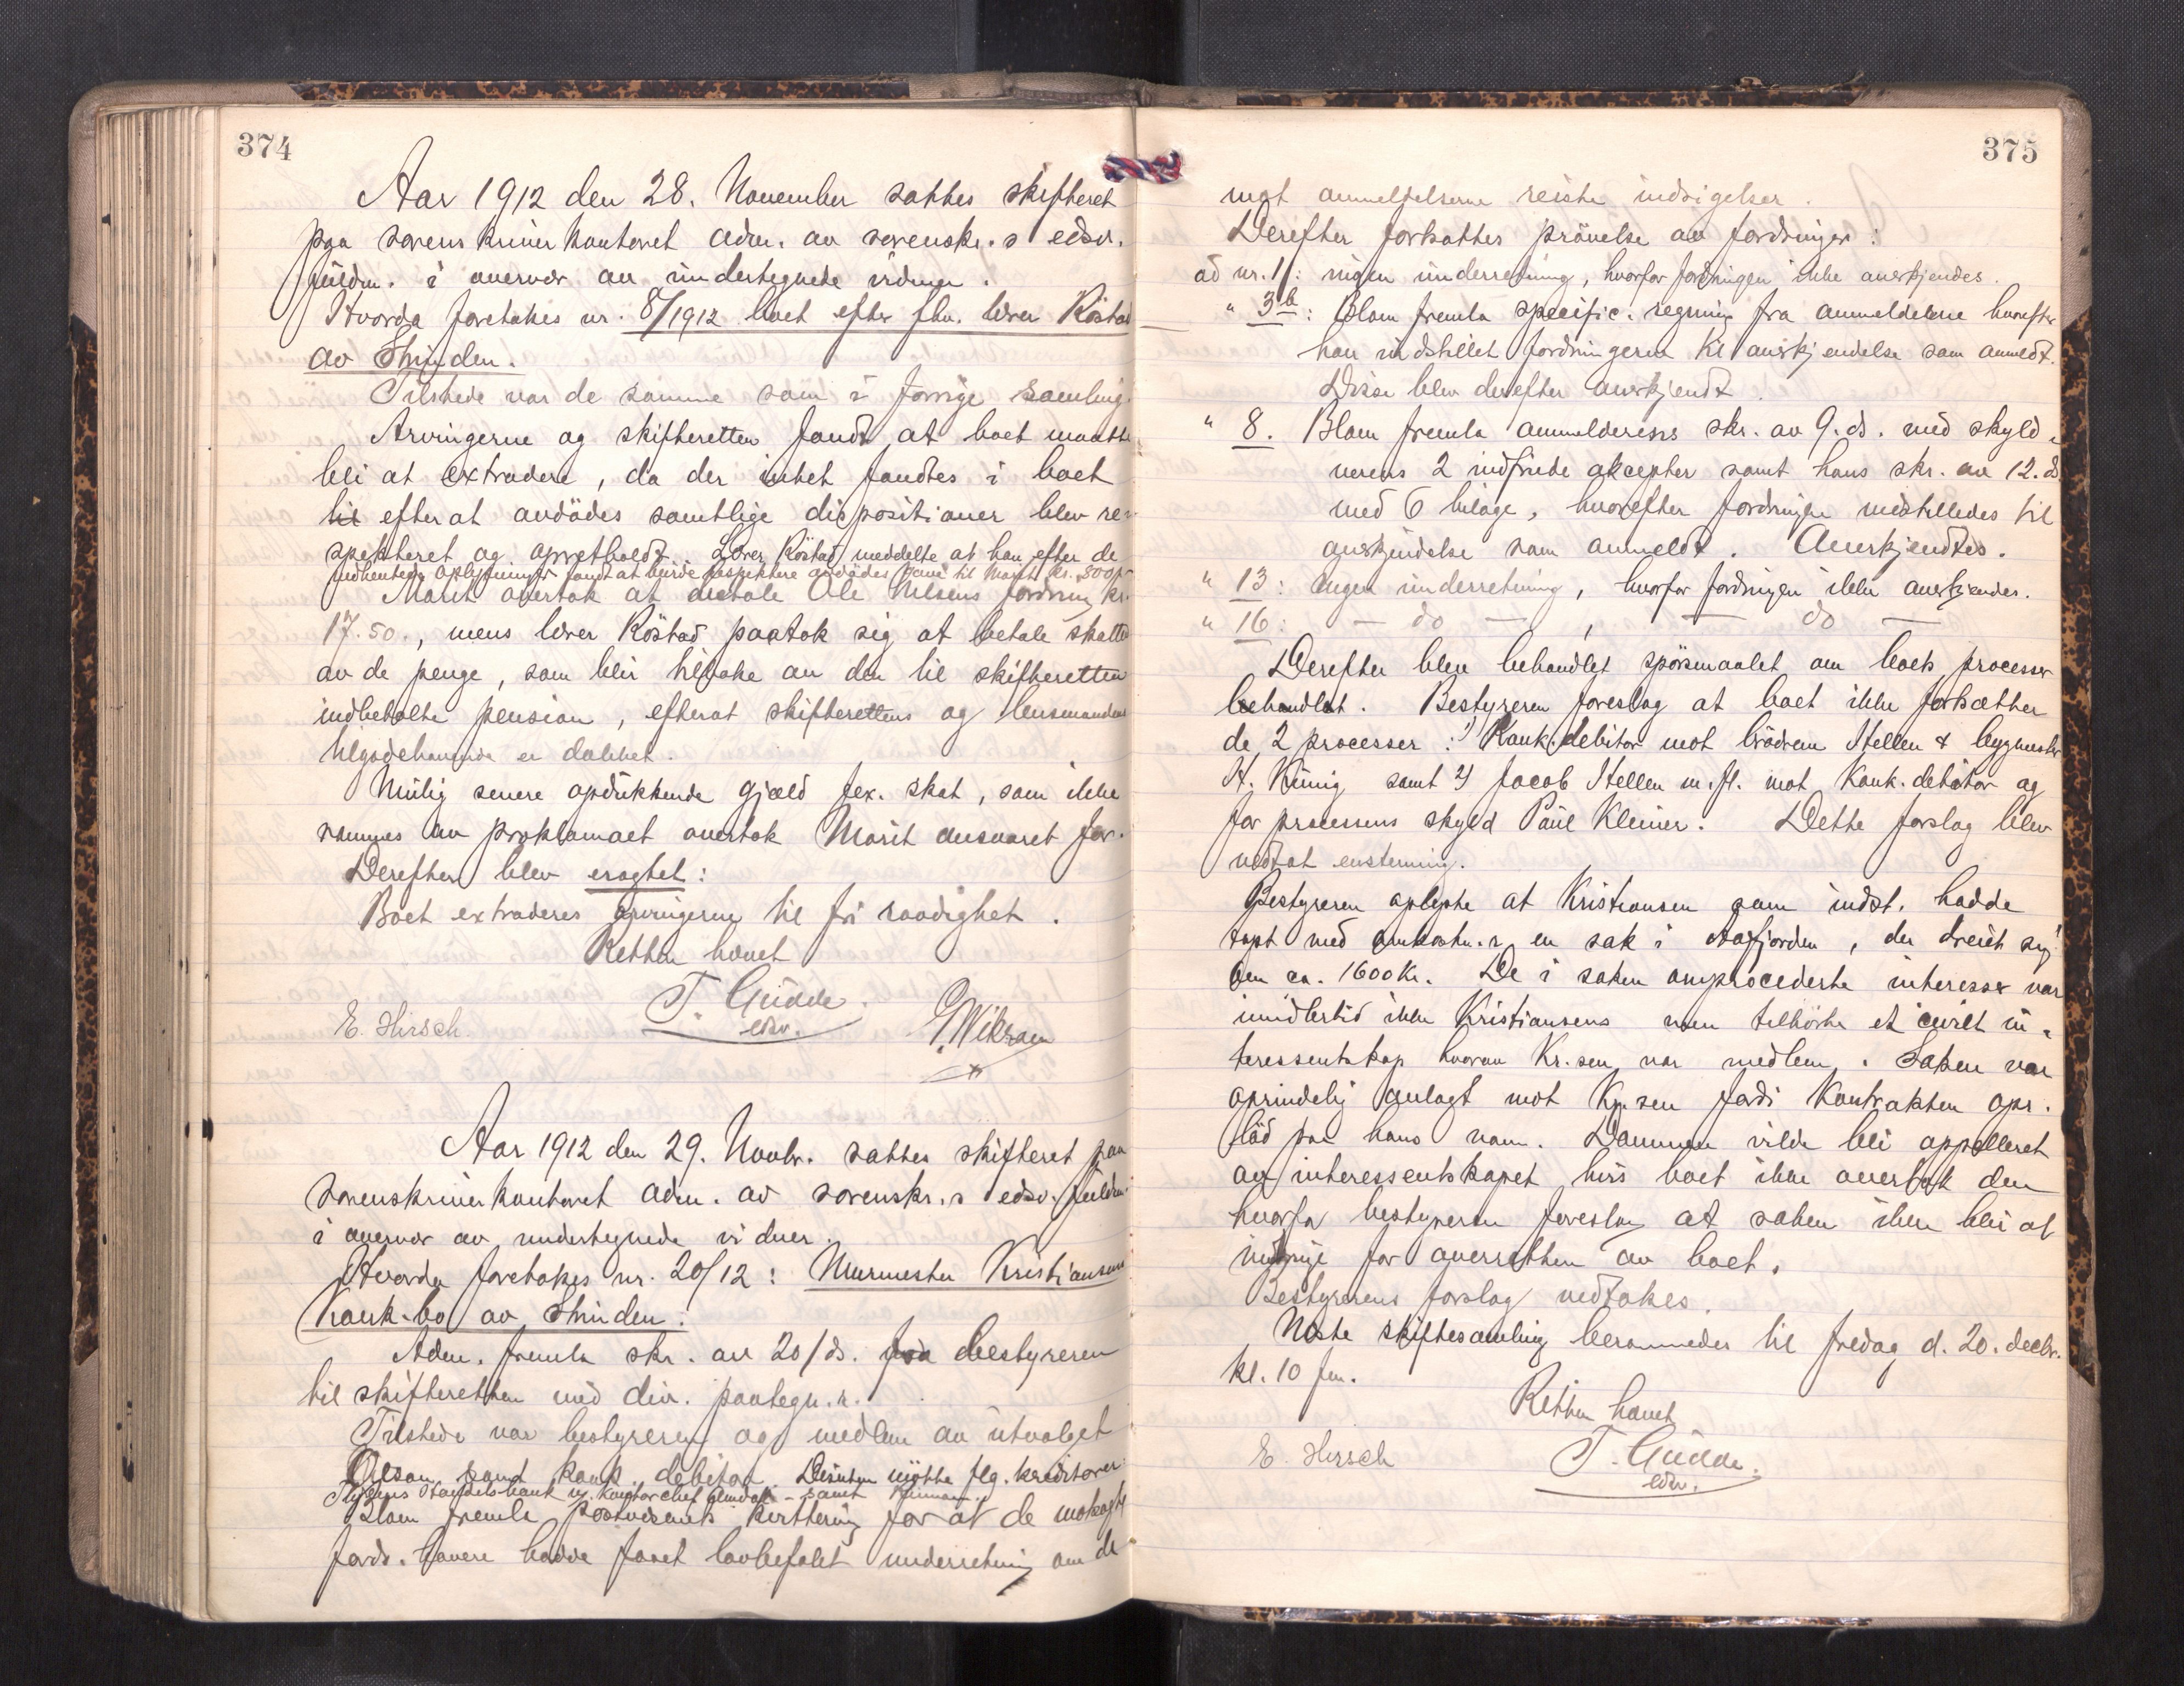 374
Aar 1912 den 28. November sattes skifteret
paa sorenskriverkontoret adm. av sorenskr.s edsv.
fuldm. i overvær av undertegnede vidner.
Hvorda foretokes nr. 8/1912 boet efter fhv. lærer Röstad
av Strinden.
Tilstede var de samme som i forrige samling.
Arvingerne og skifteretten fandt at boet maatte
bli at extradere, da der intet fandtes i boet
til efterat avdödes samtlige dispositioner blev re-
spekteret og opretholdt. Lærer Röstad meddelte at han efter de
indhentede oplysninger fandt at burde respektere avdödes gave til Marit kr. 800,-
Marit overtok at betale Ole Nilsens fordring kr.
17.50., mens lærer Röstad paatok sig at betale skatten
av de penge, som blir tilbake av den til skifteretten
indbetalte pension, efterat skifterettens og lensmandens
tilgodehavende er dækket.
Mulig senere opdukkende gjæld f.ex. skat, som ikke
rammes av proklamaet overtok Marit ansvaret for.
Derefter blev eragtet:
Boet extraderes arvingerne til fri raadighet.
Retten hævet
T. Gudde.
edsv.
E. Hirsch.
Aar 1912 den 29. Novbr. sattes skifteret paa
sorenskriverkontoret adm. av sorenskr.s edsv. fuldm.
i overvær av undertegnede vidner.
Hvorda foretokes nr. 20/12: Murmester Kristiansens
konk.bo av Strinden.
Adm. fremla skr. av 20/ds. fra bestyreren
til skifteretten med div. paategn.r.
Tilstede var bestyreren og medlem av utvalget
Olsen samt konk. debitor. Desuten mötte flg. kreditorer:
Handelsbank v. kontorchef - samt
Blom fremla postvæsenets kvittering for at de motsagte
ford.havere hadde faaet lovbefalet underretning om de
375
mot anmeldelserne reiste indsigelser.
Derefter fortsattes prövelse av fordringer:
ad nr. 1: ingen underretning, hvorfor fordringen ikke anerkjendes.
" 3b: Blom fremla specific. regning fra anmelderne hvorefter
han indstillet fordringerne til anerkjendelse som anmeldt.
Disse blev derefter anerkjendt.
" 8. Blom fremla anmelderens skr. av 9. ds. med skyld-
nerens 2 indfriede akcepter samt hans skr. av 12. ds
med 6 bilage, hvorefter fordringen indstilledes til
anerkjendelse som anmeldt. Anerkjendtes.
" 13: Ingen underretning, hvorfor fordringen ikke anerkjendes.
" 16: — do — , — do —
Derefter blev behandlet spörsmaalet om boets processer
behandlet. Bestyreren foreslog at boet ikke fortsætter
de 2 processer: 1) Konk.debitor mot brödrene Stellen & bygmester
H. König samt 2) Jacob Stellen m.fl. mot Konk.debitor og
for processens skyld Paul Kleiner. Dette forslag blev
vedtat enstemmig.
Bestyreren oplyste at Kristiansen som indst. hadde
tapt med omkostn.r en sak i Aafjorden, der dreiet sig
om ca. 1600 kr. De i saken omprocederte interesser var
imidlertid ikke Kristiansens men tilhörte et civilt in-
teressentskap hvorav Kr.sen var medlem. Saken var
oprindelig anlagt mot Kr.sen fordi kontrakten opr.
löd paa hans navn. Dommen vilde bli appelleret
av interessentskapet hvis boet ikke overtok den
hvorfor bestyreren foreslog at saken ikke blir at
indbringe for overretten av boet.
Bestyrerens forslag vedtokes.
Næste skiftesamling berammedes til fredag d. 20. decbr.
kl. 10 fm.
Retten hævet
E. Hirsch
T. Gudde.
edsv.